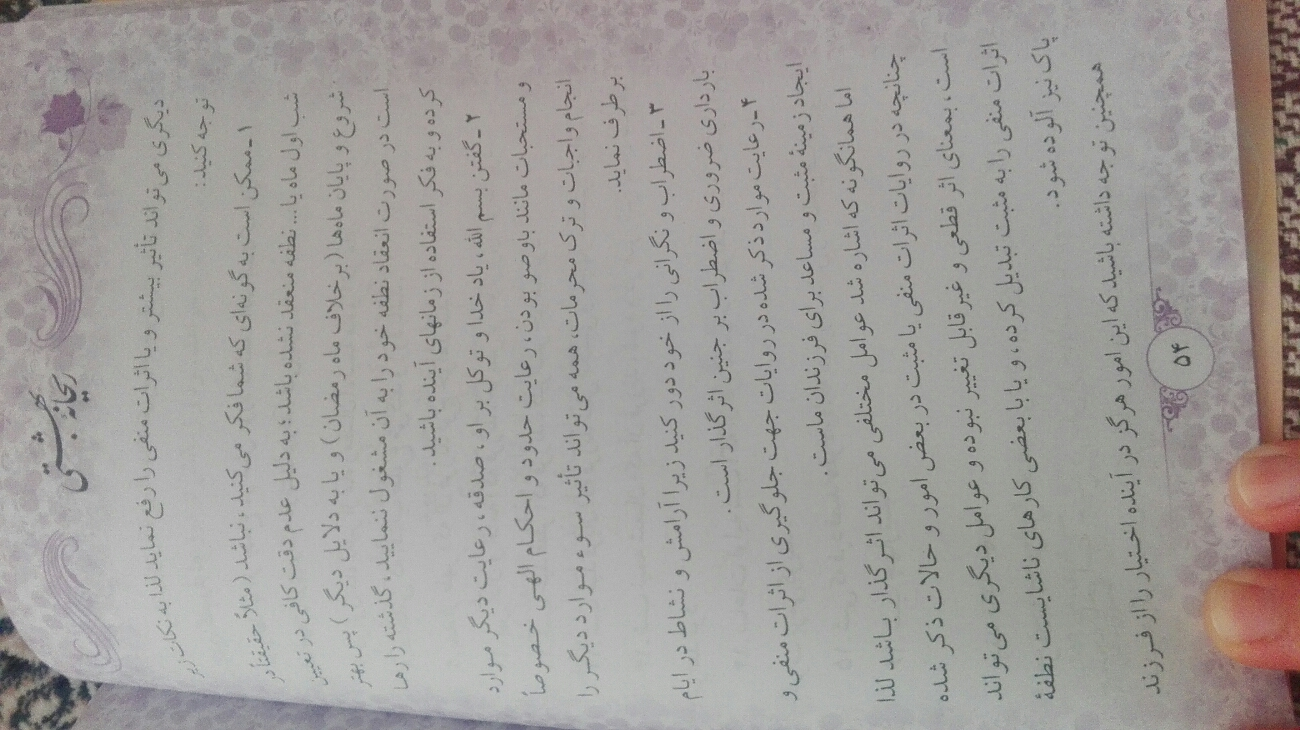 ریحانه بهشتی
دیگری می‌تواند تأثیر بیشتر و یا اثرات منفی را رفع نماید لذا به نکات زیر
توجه کنید:
۱ـ ممکن است به گونه‌ای که شما فکر می‌کنید، نباشد (مثلاً حقیقتاً در
شب اول ماه یا ... نطفه منعقد نشده باشد؛ به دلیل عدم دقت کافی در تعیین
شروع و پایان ماه‌ها (برخلاف ماه رمضان) و یا به دلایل دیگر) پس بهتر
است در صورت انعقاد نطفه خود را به آن مشغول ننمایید، گذشته را رها
کرده و به فکر استفاده از زمانهای آینده باشید.
۲ـ گفتن بسم الله، یاد خدا و توکل بر او، صدقه، رعایت دیگر موارد
و مستحبات مانند باوضو بودن، رعایت حدود و احکام الهی خصوصاً
انجام واجبات و ترک محرمات، همه می‌تواند تأثیر سوء موارد دیگر را
برطرف نماید.
۳ـ اضطراب و نگرانی را از خود دور کنید زیرا آرامش و نشاط در ایام
بارداری ضروری و اضطراب بر جنین اثرگذار است.
۴ـ رعایت موارد ذکر شده در روایات جهت جلوگیری از اثرات منفی و
ایجاد زمینهٔ مثبت و مساعد برای فرزندان ماست.
اما همانگونه که اشاره شد عوامل مختلفی می‌تواند اثرگذار باشد لذا
چنانچه در روایات اثرات منفی یا مثبت در بعض امور و حالات ذکر شده
است، بمعنای اثر قطعی و غیر قابل تغییر نبوده و عوامل دیگری می‌تواند
اثرات منفی را به مثبت تبدیل کرده، و یا با بعضی کارهای ناشایست نطفهٔ
پاک نیز آلوده شود.
همچنین توجه داشته باشید که این امور هرگز در آینده اختیار را از فرزند
۵۴